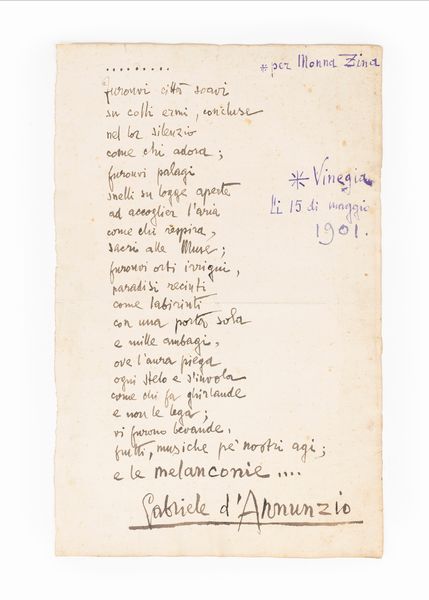 .........
*per Monna Zina
furonvi città soavi
su colli ermi, concluse
nel lor silenzio
come chi adora;
furonvi palagi
snelli su logge aperte
ad accoglier l'aria
come chi respira,
sacri alle Muse;
furonvi orti irrigui,
paradisi recinti
come labirinti
con una porta sola
e mille ambagi,
ove l'aura piega
ogni stelo e s'invola
come chi fa ghirlande
e non le lega;
vi furono bevande,
frutti, musiche pe' nostri agi;
e le melanconie ....
Gabriele d'Annunzio
* Vinegia
li 15 di maggio
1901.